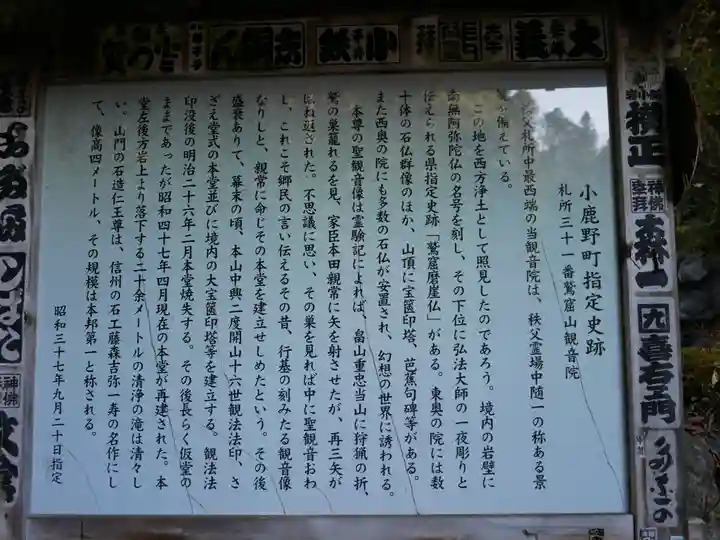 小鹿野町指定史跡
札所三十一番鷲窟山観音院
秩父札所中最西端の当観音院は、秩父霊場中随一の称ある景
を備えている。
この地を西方浄土として照見したのであろう。境内の岩壁に
南無阿弥陀仏の名号を刻し、その下位に弘法大師の一夜彫りと
伝えられる県指定史跡「鷲窟磨崖仏」がある。東奥の院には数
十体の石仏群像のほか、山頂に宝篋印塔、芭蕉句碑等がある。
また西奥の院にも多数の石仏が安置され、幻想の世界に誘われる。
本尊の聖観音像は霊験記によれば、畠山重忠当山に狩猟の折、
鷲の巣籠れるを見、家臣本田親常に矢を射させたが、再三矢が
はね返された。不思議に思い、その巣を見れば中に聖観音おわ
し、これこそ郷民の言い伝えるその昔、行基の刻みたる観音像
なりしと、親常に命じその本堂を建立せしめたという。その後
盛衰ありて、幕末の頃、本山中興二度開山十六世観法法印、さ
ざえ堂式の本堂並びに境内の大宝篋印塔等を建立する。観法法
印没後の明治二十六年二月本堂焼失する。その後長らく仮堂の
ままであったが昭和四十七年四月現在の本堂が再建された。本
堂左後方岩上より落下する二十余メートルの清浄の滝は清々し
い。山門の石造仁王尊は、信州の石工藤森吉弥一寿の名作にし
て、像高四メートル、その規模は本邦第一と称される。
昭和三十七年九月二十日指定
大義
小鉄
拝
横正
神佛
森一
喜右エ門
神佛